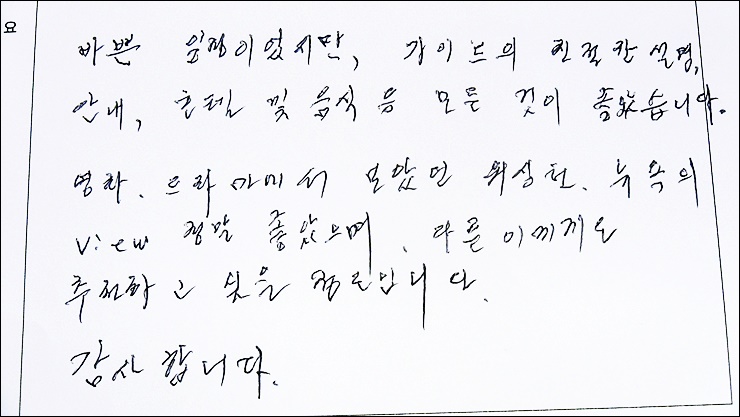 요
바쁜 일정이었지만, 가이드의 친절한 설명,
안내, 호텔 및 음식 등 모든 것이 좋았습니다.
영화. 드라마에서 보았던 워싱턴. 뉴욕의
view 정말 좋았으며, 다른 이에게도
추천하고 싶을 정도입니다.
감사합니다.